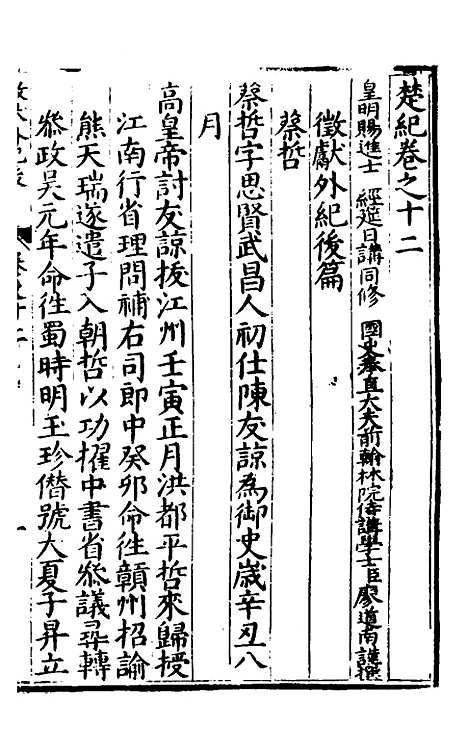 楚紀卷之十二
皇明賜進士 經筵日講同修 國史奉直大夫前翰林院侍講學士臣廖道南謹撰
徵獻外紀後篇
蔡哲
蔡哲字思賢武昌人初仕陳友諒為御史歲辛丑八
月
高皇帝討友諒拔江州壬寅正月洪都平哲來歸授
江南行省理問補右司郎中癸卯命徃贛州招諭
熊天瑞遂遣子入朝哲以功擢中書省叅議尋轉
叅政吳元年命徃蜀時明玉珍僭號大夏子昇立